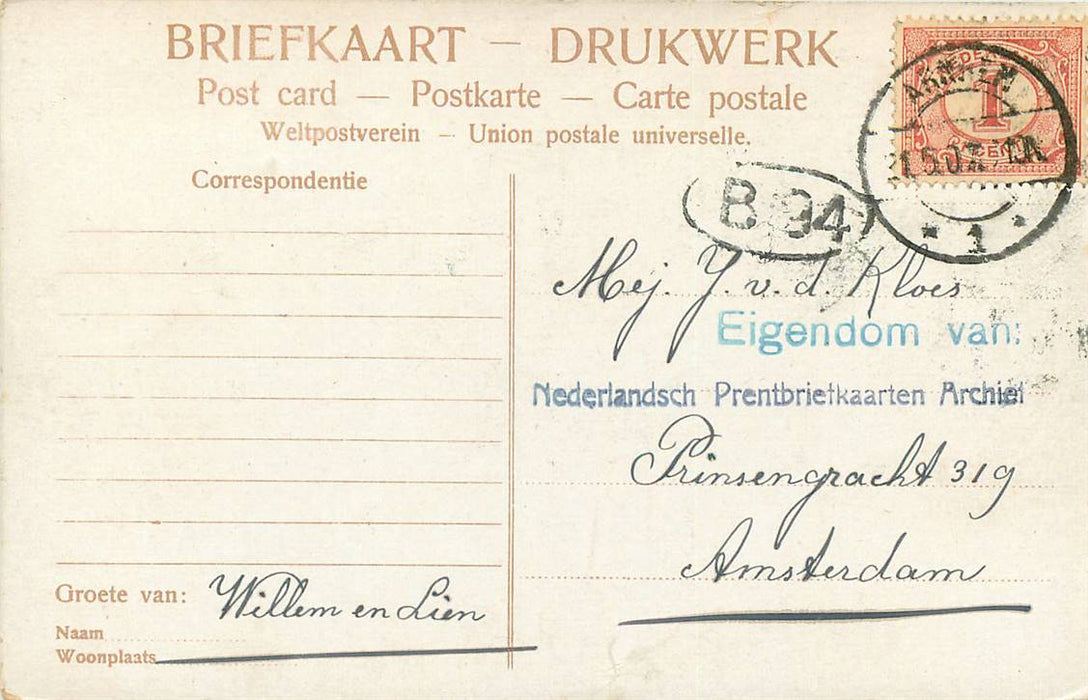 BRIEFKAART — DRUKWERK
Post card — Postkarte — Carte postale
Weltpostverein — Union postale universelle.
Correspondentie
ARNHEM
1
1
B 94
Mej. J. v. d. Kloes
Eigendom van:
Nederlandsch Prentbriefkaarten Archief
Prinsengracht 319
Amsterdam
Groete van: Willem en Lien
Naam
Woonplaats